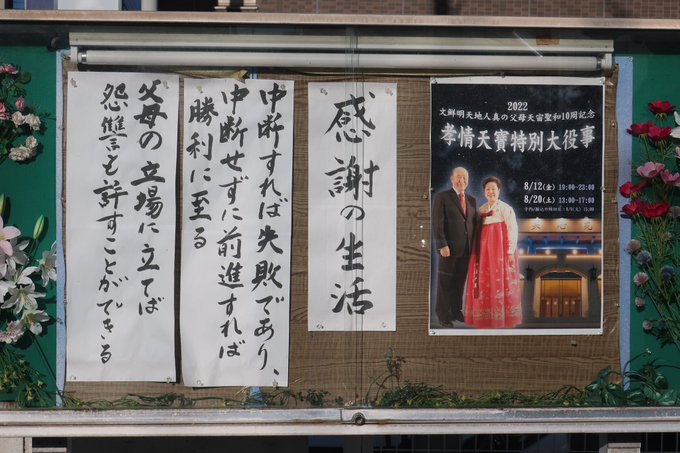 感謝の生活
中断すれば失敗であり、
中断せずに前進すれば
勝利に至る
父母の立場に立てば
怨讐も許すことができる
2022
文鮮明天地人真の父母天宙聖和10周年記念
孝情天寶特別大役事
8/12(金) 19:00-23:00
8/20(土) 13:00-17:00